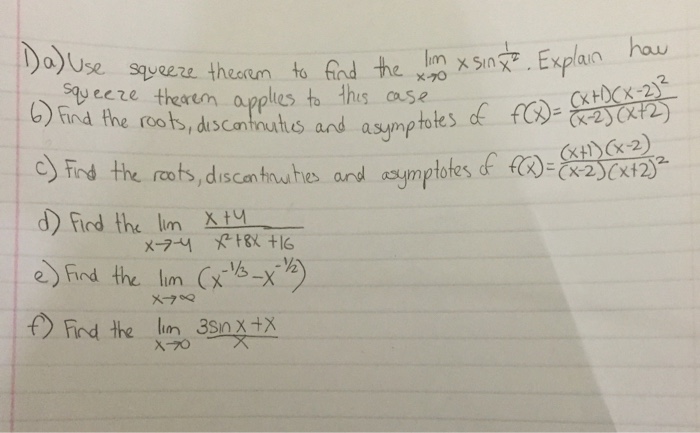 1) a) Use squeeze theorem to find the lim x→0 x sin 1/x². Explain how
squeeze theorem applies to this case
b) Find the roots, discontinuties and asymptotes of f(x)= (x+1)(x-2)²/(x-2)(x+2)
c) Find the roots, discontinuities and asymptotes of f(x)= (x+1)(x-2)/(x-2)(x+2)²
d) Find the lim x→-4 x+4/x²+8x+16
e) Find the lim x→∞ (x^-1/3 - x^-1/2)
f) Find the lim x→0 3sinx+x/x